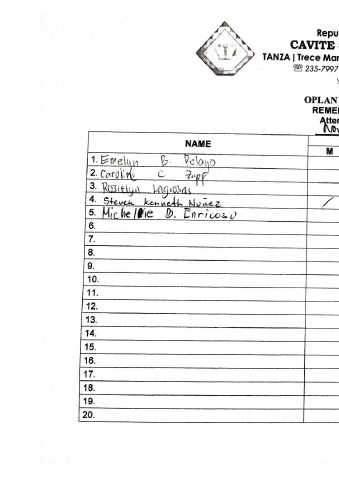 Repu
CAVITE
TANZA | Trece Mar
☏ 235-7997
OPLAN
REMEI
Atter
Nov
NAME
M
1. Emelyn B. Pelayo
2. Caroline C
3. Roselyn
4. Steven Kenneth Nuñez /
5. Michellie D. Enricoso
6.
7.
8.
9.
10.
11.
12.
13.
14.
15.
16.
17.
18.
19.
20.